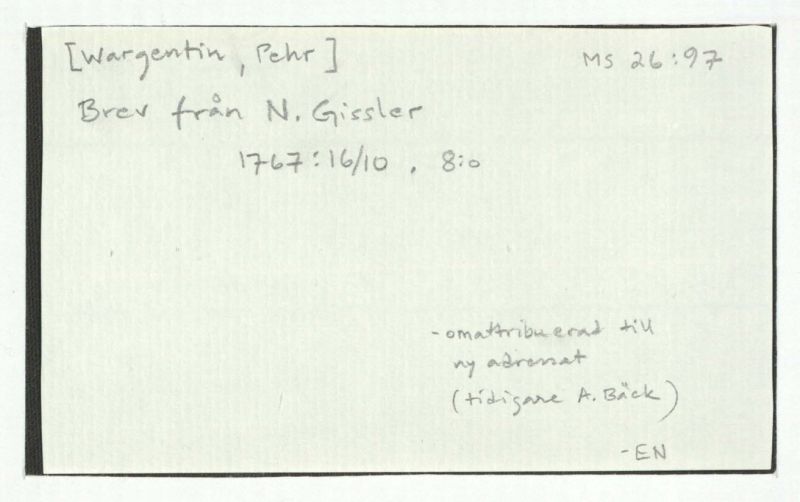 [Wargentin, Pehr] MS 26:97
Brev från N. Gissler
1767:16/10. 8:o
-omattribuerad till
ny adressat
(tidigare A. Bäck)
-EN